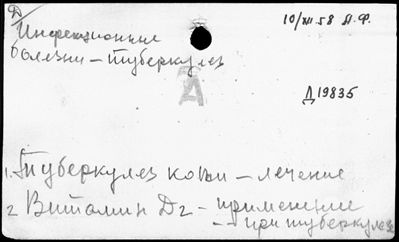 Д
10/XII 58 А.Ф.
Инфекционные
болезни – туберкулез
А
Д 19835
1. Туберкулез кожи – лечение
2 Витамин D2 – применение
– при туберкулезе